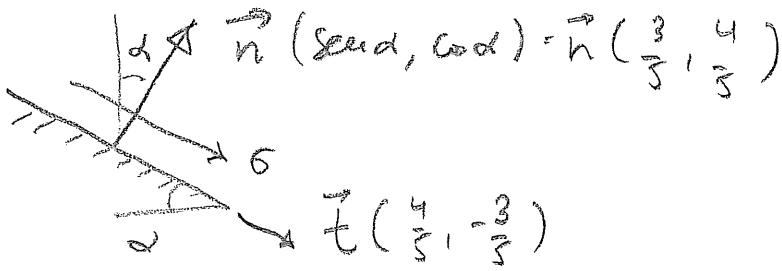 α n⃗ (sen α, cos α) = n⃗ (3/5, 4/5)
σ
α t⃗ (4/5, -3/5)